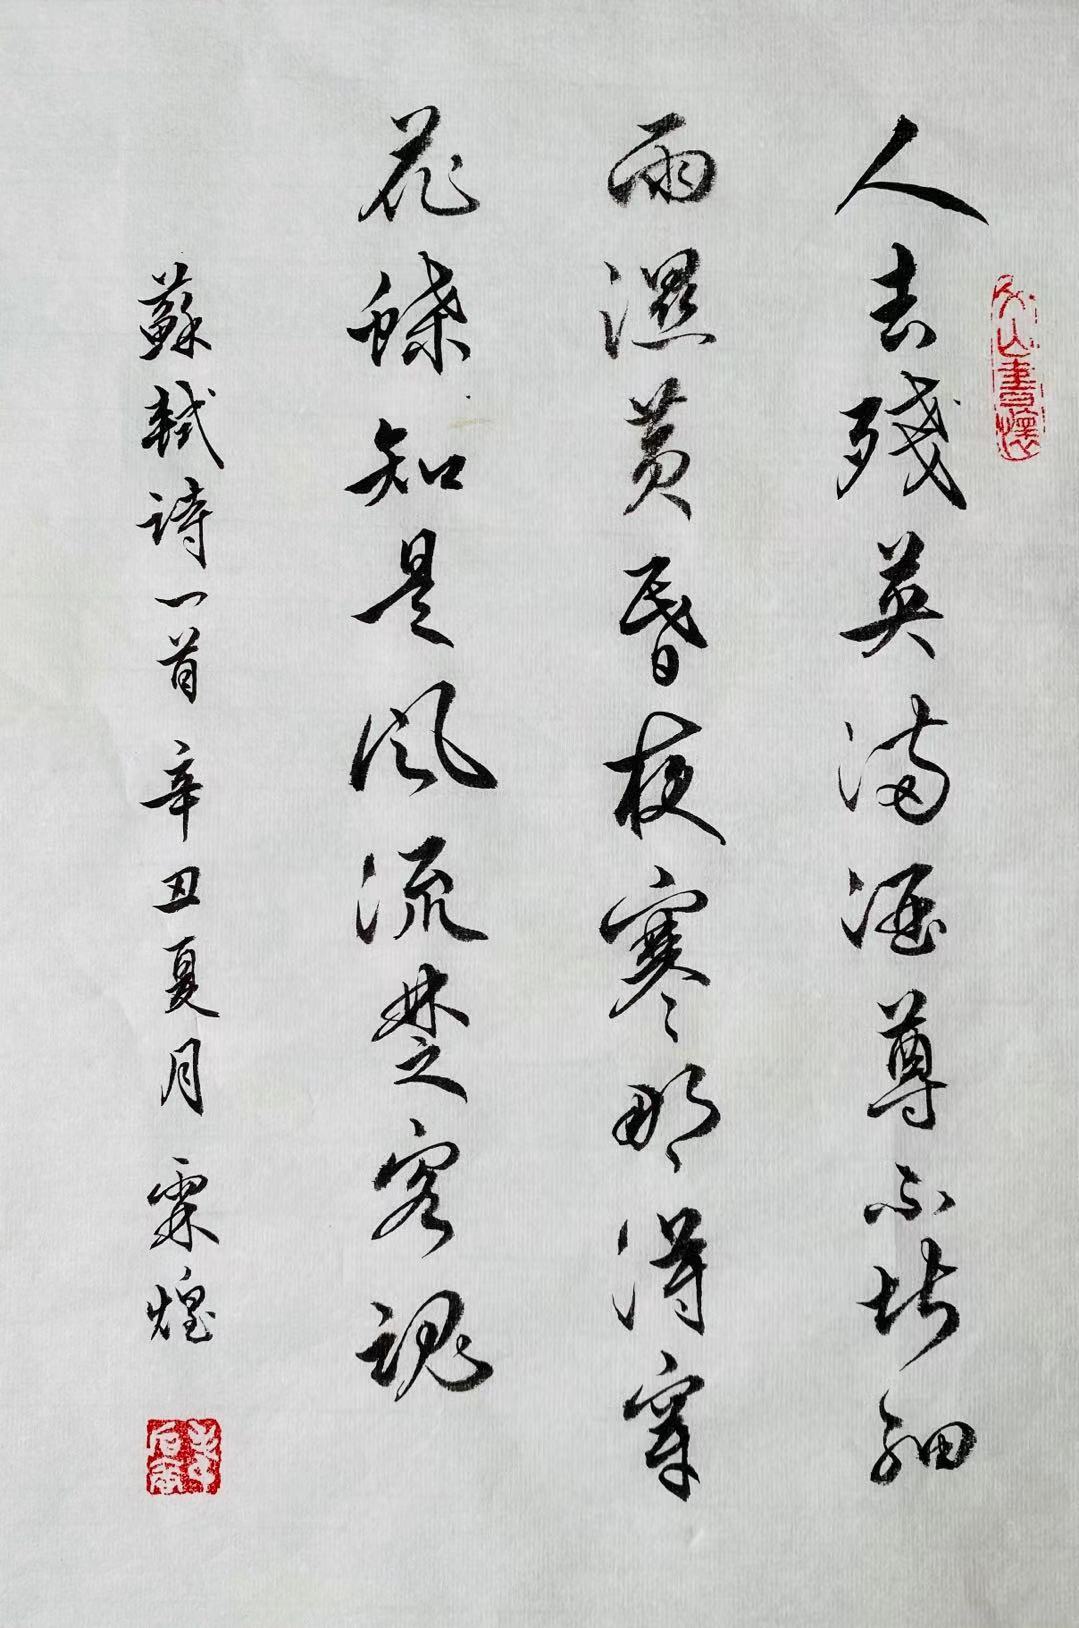 人去殘英滿酒尊不堪細
雨濕黃昬夜寒那得穿
花蝶知是風流楚客魂
蘇軾詩一首 辛丑夏月 霖煌